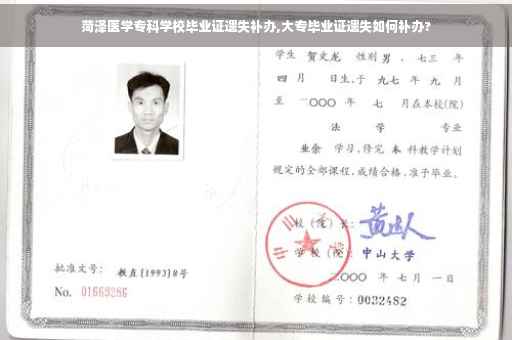 菏泽医学专科学校毕业证遗失补办,大专毕业证遗失如何补办?
学生 贺文龙 性别 男 、七三 年
四 月 日生,于 九七 年 九 月
至 二〇〇〇 年 七 月在本校(院)
法 学 专业
业余 学习,修完 本 科教学计划
规定的全部课程,成绩合格,准予毕业。
校 (院) 长:
学 校 (院): 中山大学
二〇〇〇 年 七 月 一 日
批准文号: 教直[1993]8号
No. 01669286
学校编号: 0032482